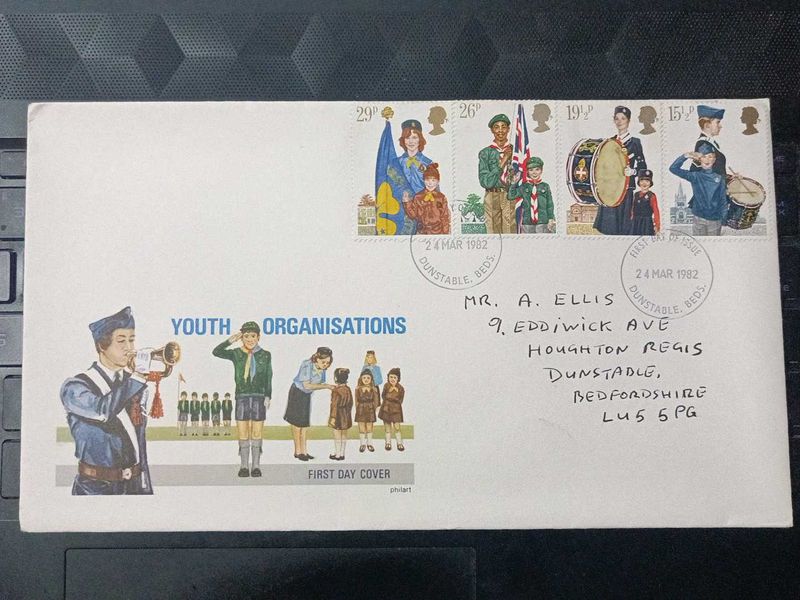 29P
26P
19½P
15½P
24 MAR 1982
DUNSTABLE, BEDS.
FIRST DAY OF ISSUE
24 MAR 1982
DUNSTABLE, BEDS.
MR. A. ELLIS
9, EDDIWICK AVE
HOUGHTON REGIS
DUNSTABLE,
BEDFORDSHIRE
LU5 5PG
YOUTH ORGANISATIONS
FIRST DAY COVER
philart